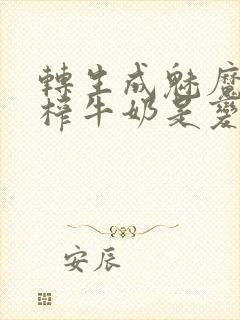 轉生成魅魔
榨牛奶是變
安辰